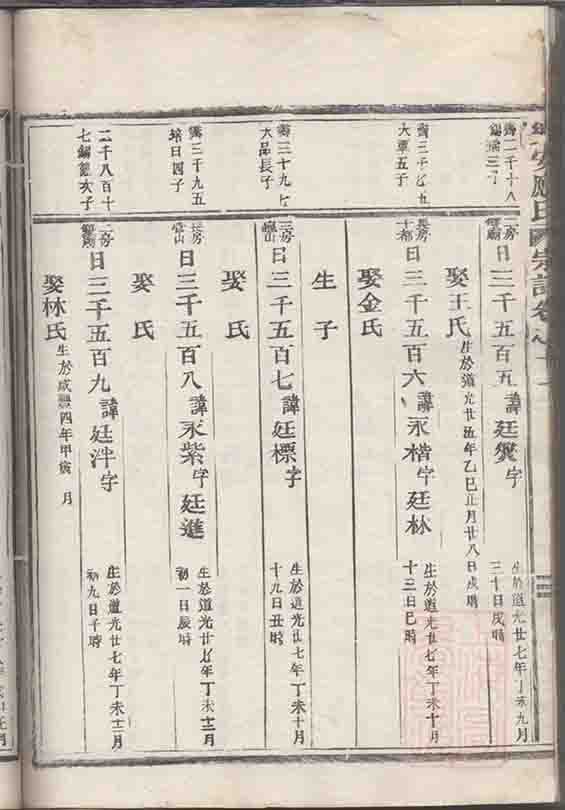 應氏
宗譜卷之
霽二千十八
三子
二房
日三千五百五諱廷爕字
生於道光廿七年丁未九月
三十日戌時
娶王氏
生於道光廿五年乙巳正月廿八日戌時
霽三千
大覃五子
長房
十都
日三千五百六諱永楷字廷林
生於道光廿七年丁未十月
十三日巳時
娶金氏
生子
霽三千九七
大品長子
二房
日三千五百七諱廷標字
生於道光廿七年丁未十月
十九日丑時
娶氏
霽三千九五
培日四子
長房
日三千五百八諱永紫字廷進
生於道光廿七年丁未十二月
初一日辰時
娶氏
二千八百十
七錫
次子
二房
日三千五百九諱廷泮字
生於道光廿七年丁未十二月
初九日午時
娶林氏
生於咸豐四年甲寅 月